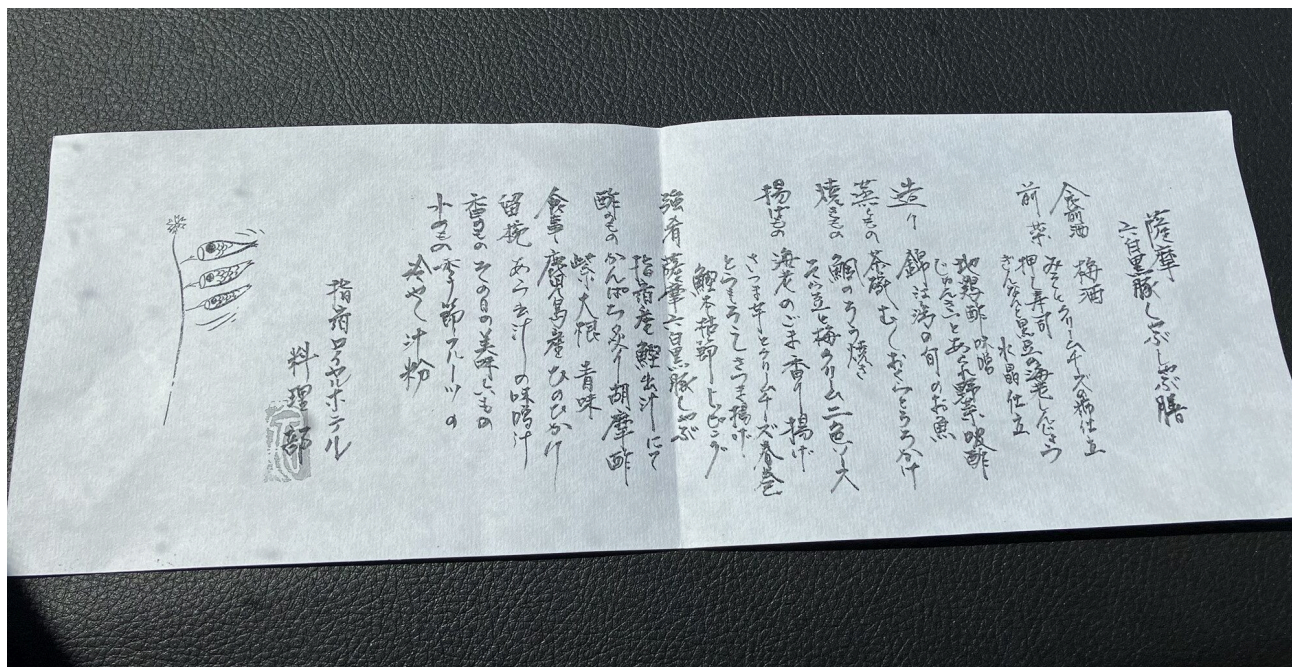 薩摩
六白黒豚しゃぶしゃぶ膳
食前酒 梅酒
前菜 みそとクリームチーズの 仕立
押し寿司
ぎんなんと黒豆の海老しんじょう
水晶仕立
地鶏酢味噌
じゅんさいとあくね野菜 酸酢
造り 錦江湾の旬のお魚
蒸しもの 茶碗むし おくらとろろかけ
焼きもの 鯛のろう焼き
そら豆と梅のクリーム二色ソース
揚げもの 海老のごま香り揚げ
さつま芋とクリームチーズ春巻
とうもろこしさつま揚げ
鰹本枯節トッピング
強肴 薩摩六白黒豚しゃぶ
指宿産鰹出汁にて
酢のもの かんぱち炙り胡摩酢
紫大根 青味
食事 鹿児島産ひのひかり
留椀 あら出汁の味噌汁
香のもの その日の美味しいもの
水のもの 季節フルーツの
冷やし汁粉
指宿ロイヤルホテル
料理部